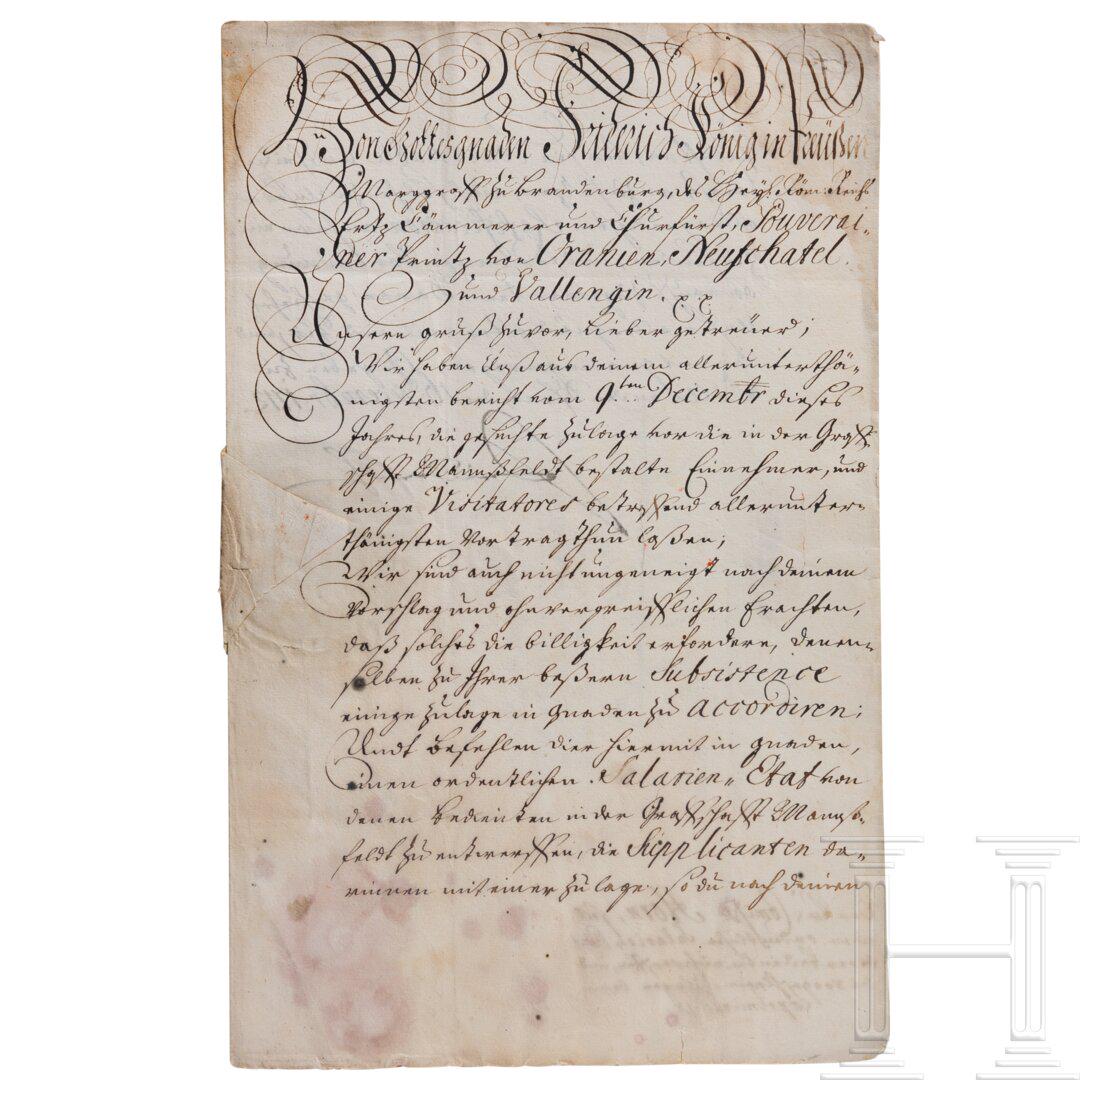 Von Gottes gnaden Friderich König in Preüßen
Marggraff zu Brandenburg, des Heyl: Röm: Reichs
Ertz Cämmerer und Churfürst, Souverai-
ner Printz von Oranien, Neufchatel
und Vallengin. xx
Unsern gruß zuvor, Lieber getreüer;
Wir haben Unß aus deinem allerunterthä-
nigsten bericht vom 9.ten Decembr dieses
Jahres, die gesuchte Zulage vor die in der Graff-
schafft Mannßfeldt bestalte Einnehmer, und
einige Visitatores betreffend allerunter-
thänigsten Vortrag thun laßen;
Wir sind auch nicht ungeneigt nach deinem
Vorschlag und ohnvergreifflichen Erachten,
daß solches die billigkeit erfordere, denen-
selben zu Ihrer beßern Subsistence
einige Zulage in Gnaden zu accordiren;
Undt befehlen dier hiermit in gnaden,
einen ordentlichen Salarien-Etat von
denen bedienten in der Graffschafft Mannß-
feldt zu entwerffen, die Supplicanten da-
rinnen mit einer Zulage, so du nach deinem